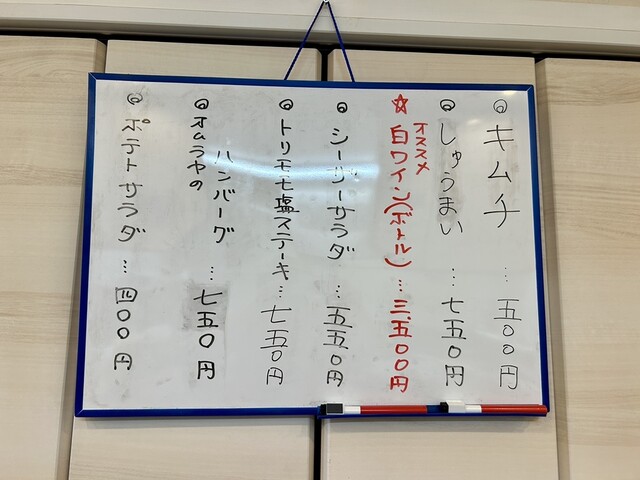 ◎キムチ…五〇〇円
◎しゅうまい…七五〇円
オススメ
☆白ワイン(ボトル)…三,五〇〇円
◎シーザーサラダ…五五〇円
◎トリモモ塩ステーキ…七五〇円
◎オムラヤの
ハンバーグ…七五〇円
◎ポテトサラダ…四〇〇円